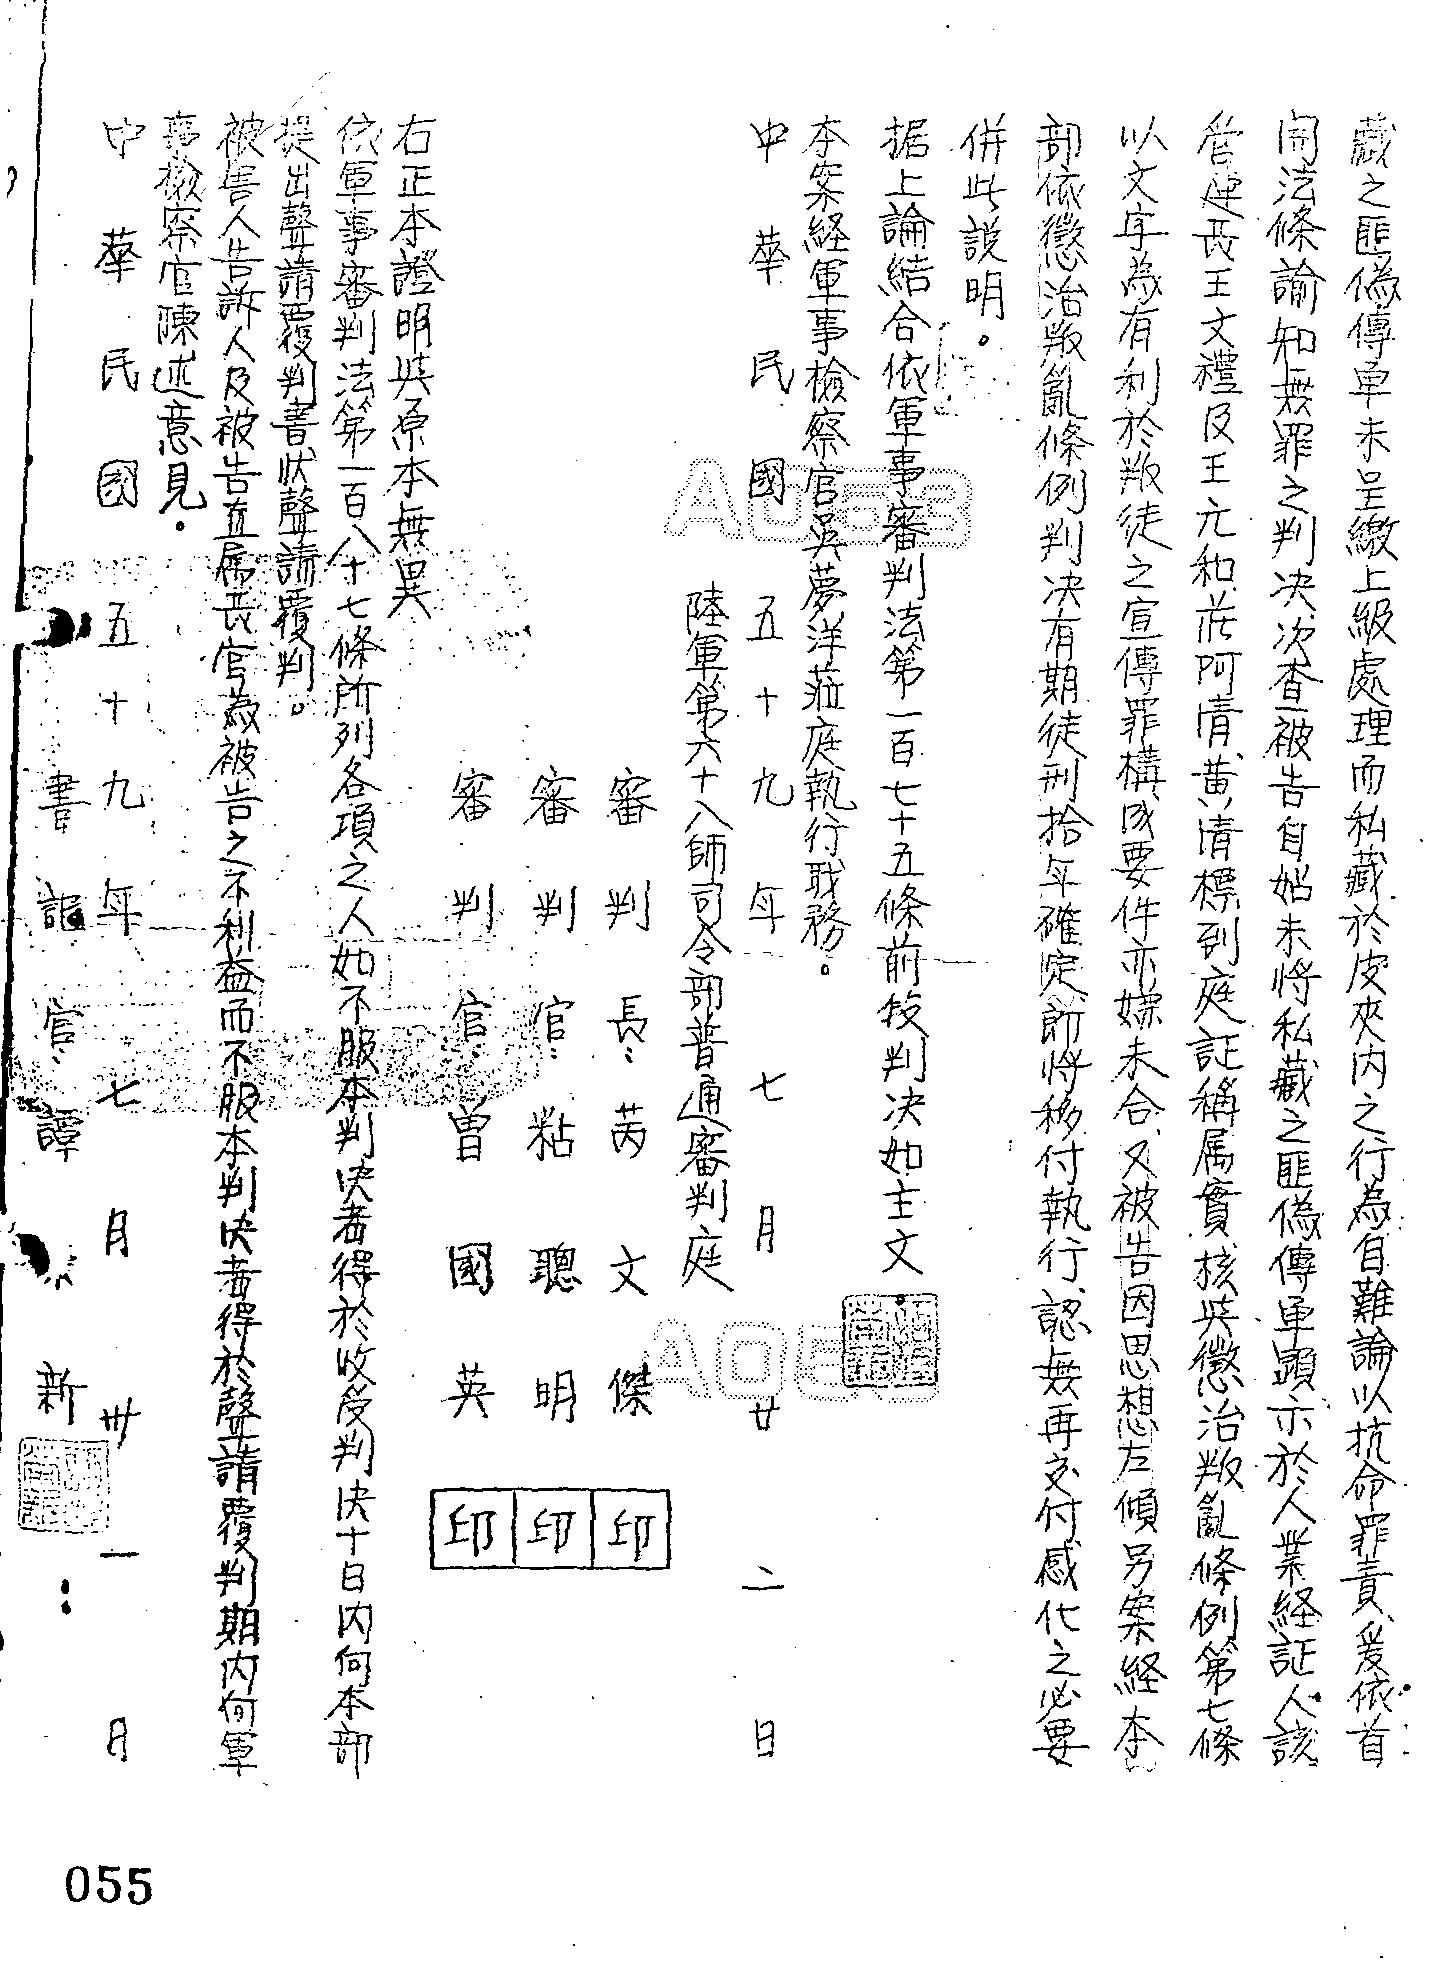 藏之匪偽傳單未呈繳上級處理而私藏於皮夾內之行為自難論以抗命罪責、爰依首
開法條諭知無罪之判決、次查被告自始未將私藏之匪偽傳單顯示於人業経証人該
管連長王文禮及王元和、莊阿清、黃清標到庭証稱属實、核與懲治叛亂條例第七條
以文字為有利於叛徒之宣傳罪構成要件亦嫌未合、又被告因思想左傾另案経本
部依懲治叛亂條例判決有期徒刑拾年確定、即將移付執行、認無再交付感化之必要
併此説明。
据上論結合依軍事審判法第一百七十五條前段判决如主文。
本案経軍事檢察官吳夢洋蒞庭執行職務。
中華民國五十九年七月廿二日
陸軍第六十八師司令部普通審判庭
審判長：芮文傑 印
審判官：粘聰明 印
審判官：曾國英 印
右正本證明與原本無異
依軍事審判法第一百八十七條所列各項之人如不服本判決者得於收受判決十日內向本部
提出聲請覆判書狀聲請覆判。
被害人告訴人及被告直属長官為被告之不利益而不服本判決者得於聲請覆判期內向軍
事檢察官陳述意見。
中華民國五十九年七月卅一月
書記官：譚新
A053
055